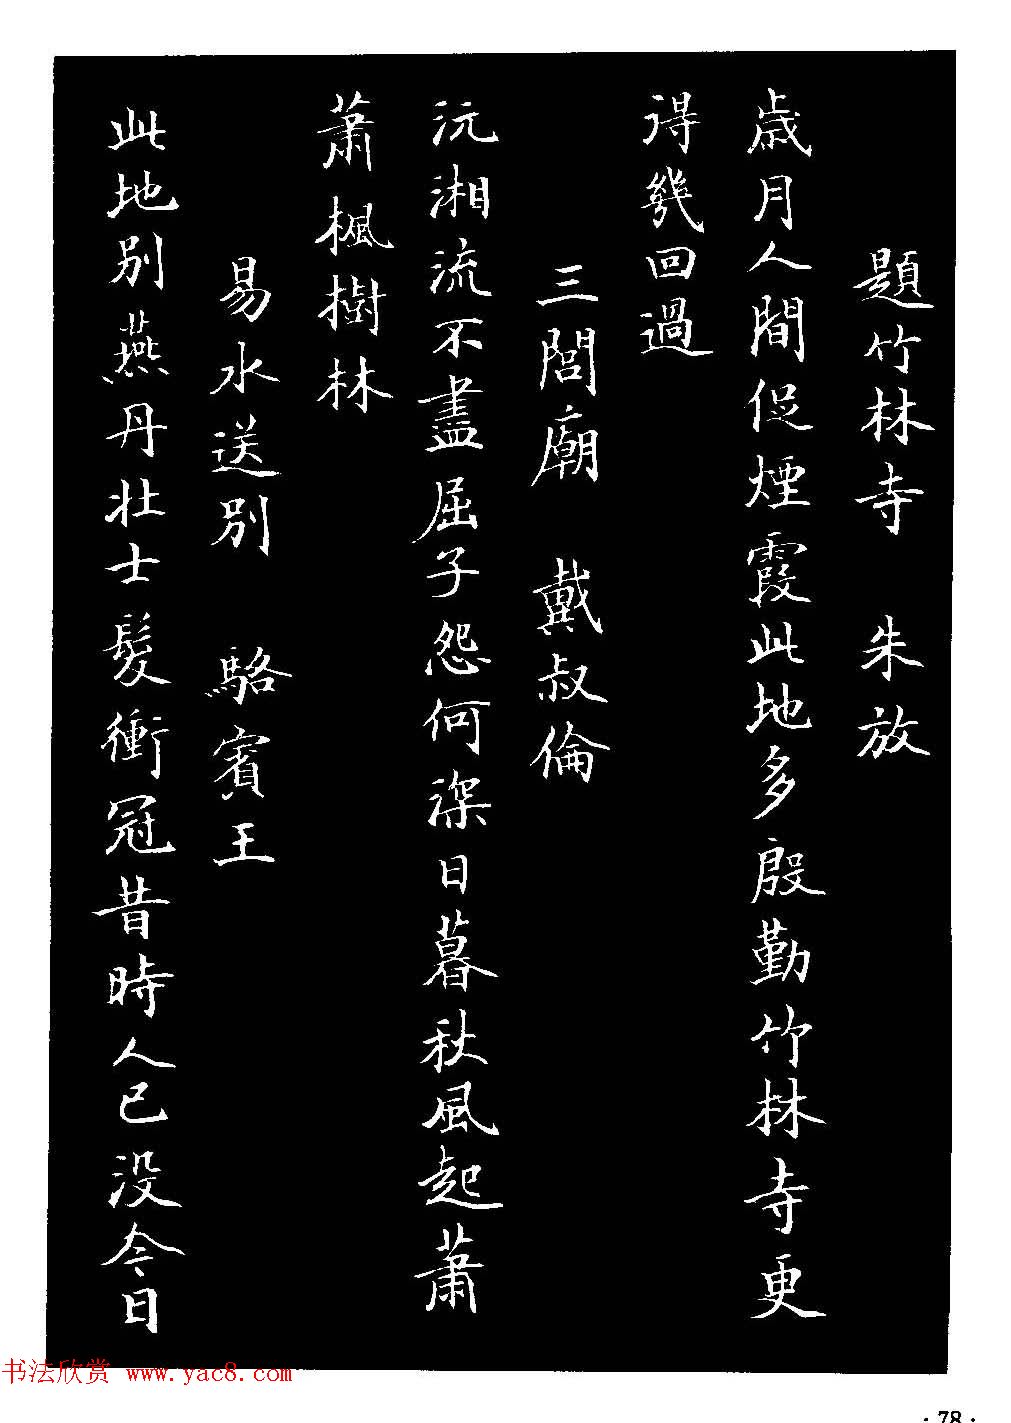 題竹林寺 朱放
歲月人間促煙霞此地多殷勤竹林寺更
得幾回過
三閭廟 戴叔倫
沅湘流不盡屈子怨何深日暮秋風起蕭
蕭楓樹林
易水送別 駱賓王
此地別燕丹壯士髮衝冠昔時人已没今日
书法欣赏 www.yac8.com
· 78 ·